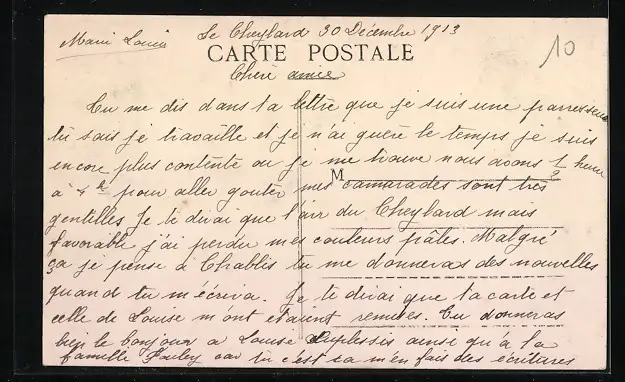 Marie Louise
Le Cheylard 30 Décembre 1913
10
CARTE POSTALE
Chère amie
Tu me dis dans ta lettre que je suis une parresseuse
tu sais je travaille et je n'ai guère le temps je suis
encore plus contente ou je me trouve nous avons 1/2 heure
M
a 4h pour aller gouter mes camarades sont très
gentilles Je te dirai que l'air du Cheylard mais
favorable j'ai perdu mes couleurs pâles. Malgré
ça je pense à Chablis tu me donneras des nouvelles
quand tu m'écriva. Je te dirai que ta carte et
celle de Louise m'ont étaient remises. Tu donneras
bien le bonjour a Louise Duplessis ainsi qu'à la
famille car tu c'est ca m'en fais des écritures